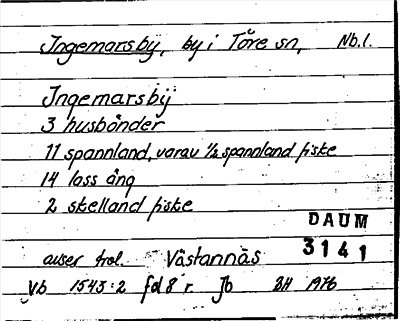 Ingemarsby, by i Töre sn, Nb.l.
Ingemarsbÿ
3 husbönder
11 spannland, varav ½ spannland fiske
14 lass äng
2 skelland fiske
DAUM
3141
avser trol. Västannäs
Vb 1543:2 fol 8 r. Jb BH 1976